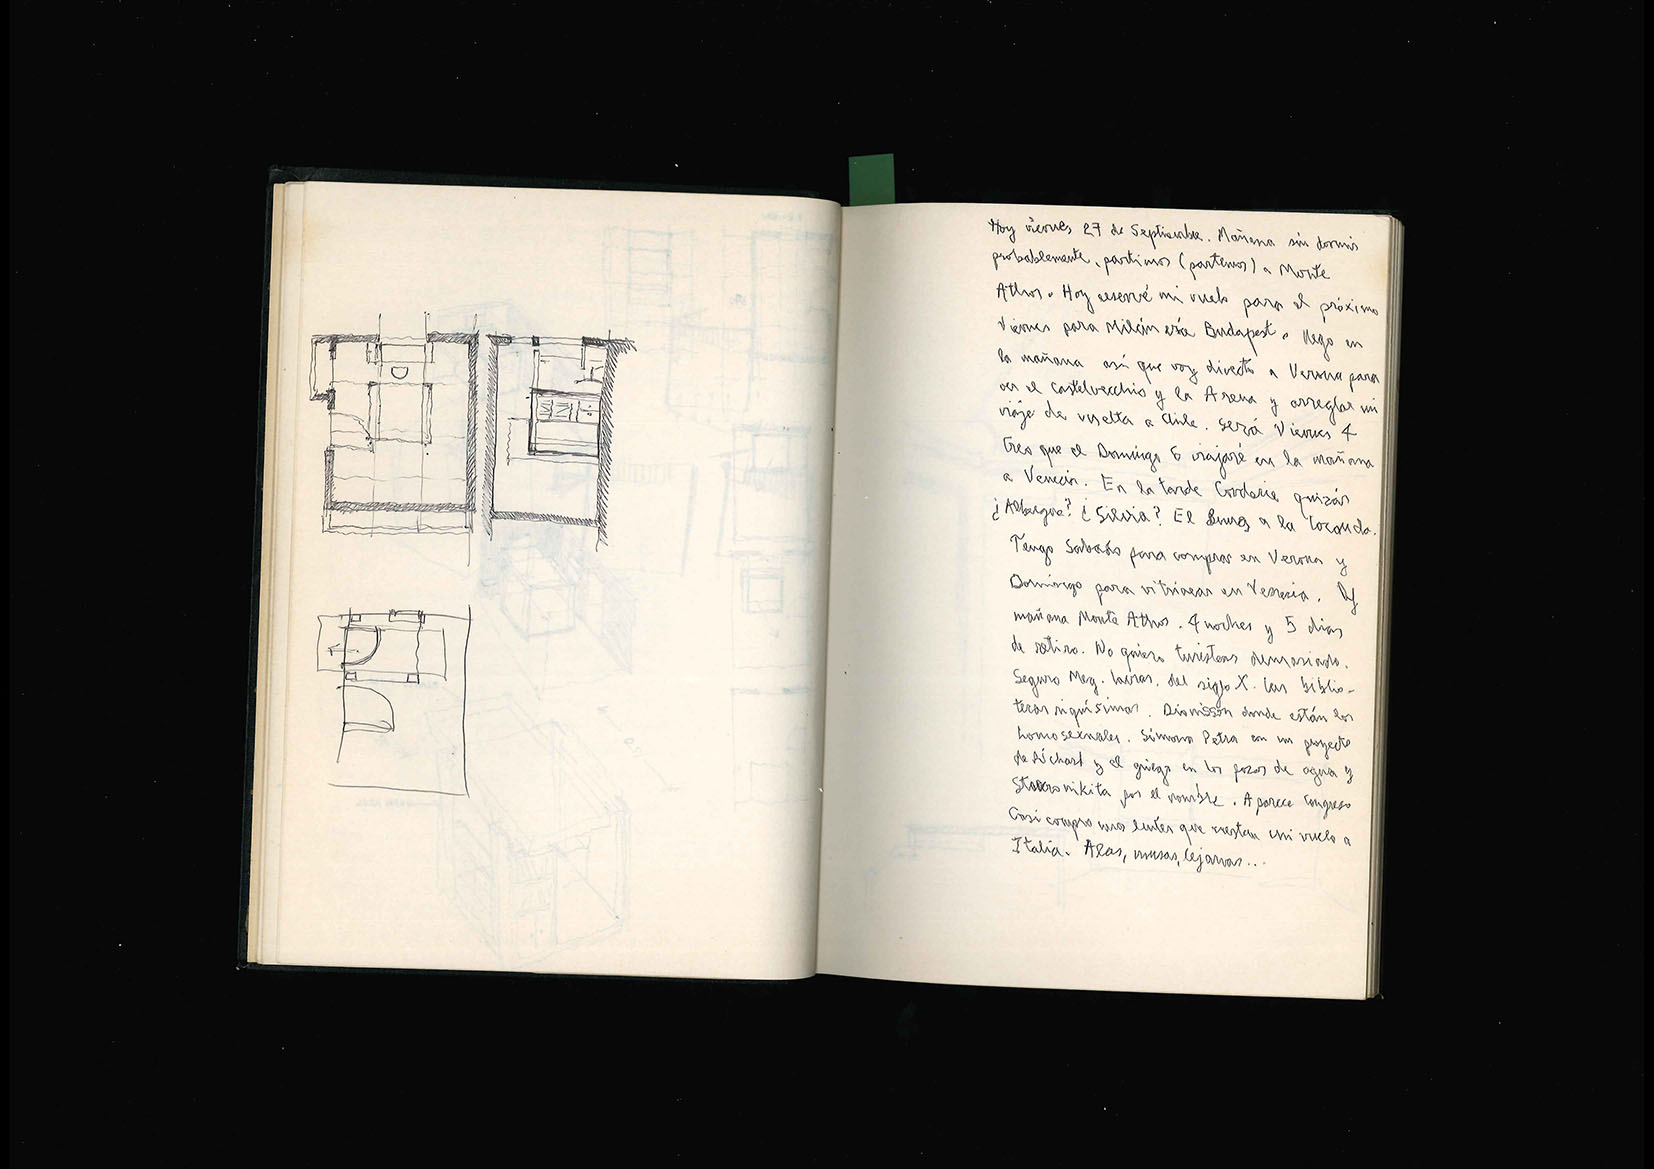 Hoy viernes 27 de Septiembre. Mañana sin dormir
probablemente, partimos (partemos) a Monte
Athos. Hoy reservé mi vuelo para el próximo
Viernes para Milán vía Budapest. llego en
la mañana así que voy directo a Verona para
ver el Castelvecchio y la Arena y arreglar mi
viaje de vuelta a Chile. Será Viernes 4
Creo que el Domingo 6 viajaré en la mañana
a Venecia. En la tarde Corderie quizás
¿Albergue? ¿Silvia? El lunes a la Locanda.
Tengo Sabado para comprar en Verona y
Domingo para vitrinear en Venezia.
mañana Monte Athos. 4 noches y 5 dias
de retiro. No quiero turistear demasiado.
Seguro Meg. lavras. del siglo X. las biblio-
tecas riquísimas. donde están los
homosexuales. Simono Petra con un proyecto
de Richard y el griego en los pozos de agua y
Stavronikita por el nombre. Aparece Congreso
Casi compro unos lentes que cuestan mi vuelo a
Italia. Alas, musas, lejanas...